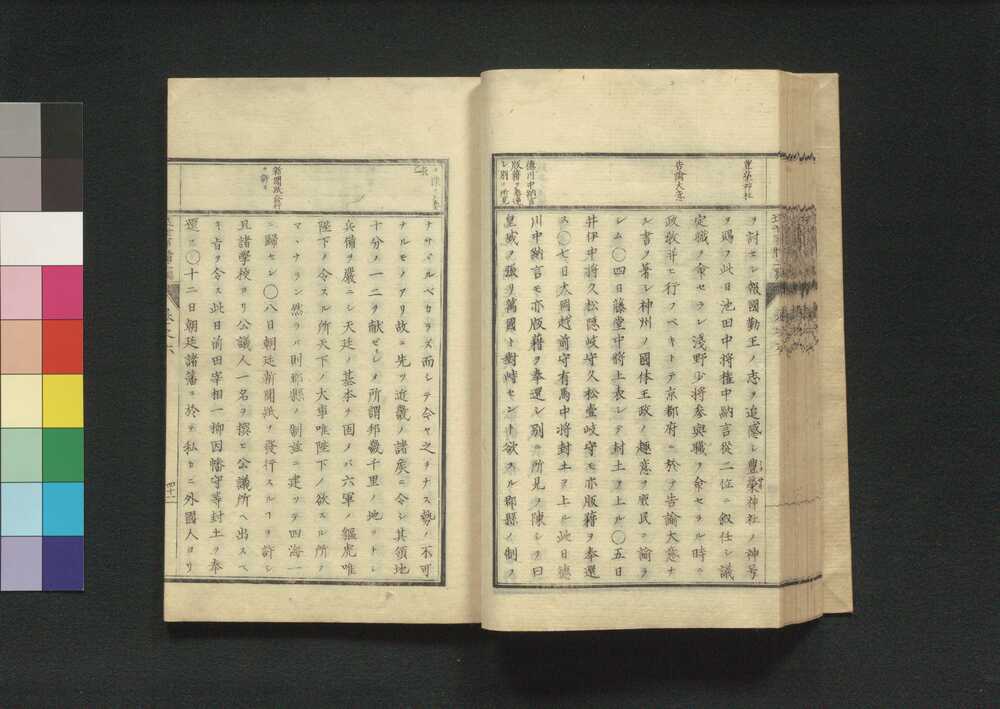 豊栄神社
告諭大意
徳川中納言
版籍ヲ奉還
シ別ニ所見
ヲ討セシ報國勤王ノ志ヲ追感シ豊榮神社ノ神号
ヲ賜フ此日池田中将權中納言從二位ニ叙任シ議
定職ノ命セラレ淺野少将参與職ヲ命セラル時ニ
政教并ヒ行フベキトテ京都府ニ於テ告諭大意ナ
ル書ヲ著シ神州ノ國体王政ノ趣意ヲ衆民ニ諭ラ
シム〇四日藤堂中将上表シテ封土ヲ上ル〇五日
井伊中将久松隠岐守久松壹岐守モ亦版籍ヲ奉還
ス〇七日大岡越前守有馬中将封土ヲ上ル此日徳
川中納言モ亦版籍ヲ奉還シ別ニ所見ヲ陳シテ曰
皇威ヲ張リ萬國ト對峙セント欲スル郡縣ノ制ヲ
ヲ陳シテ奉
新聞紙發行
ヲ許ス
ナサヾルベカラズ而シテ今之ヲナス勢ノ不可
ナルモノアリ故ニ先ツ近畿ノ諸矦ニ令シ其領地
十分ノ一二ヲ献ゼシメ所謂邦畿千里ノ地ヲトシ
兵備ヲ嚴ニシ天廷ノ基本ヲ固メバ六軍ノ貙虎唯
陛下ノ令スル所天下ノ大事唯陛下ノ欲スル所ノ
マヽナラン然ラバ則郡縣ノ制並ニ建ツテ四海一
ニ歸セン〇八日朝廷新聞紙ヲ發行スルヿヲ許シ
且諸學校ヨリ公議人一名ヲ撰ヒ公議所ヘ出スベ
キ旨ヲ令ス此日前田宰相一柳因幡守等封土ヲ奉
還ス〇十二日朝廷諸藩ニ於テ私カニ外國人ヨリ
四十二